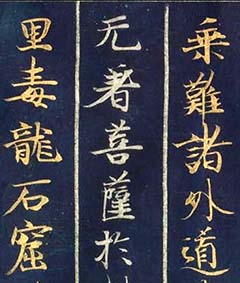 乘難諸外道
无著菩薩於
里毒龍石窟